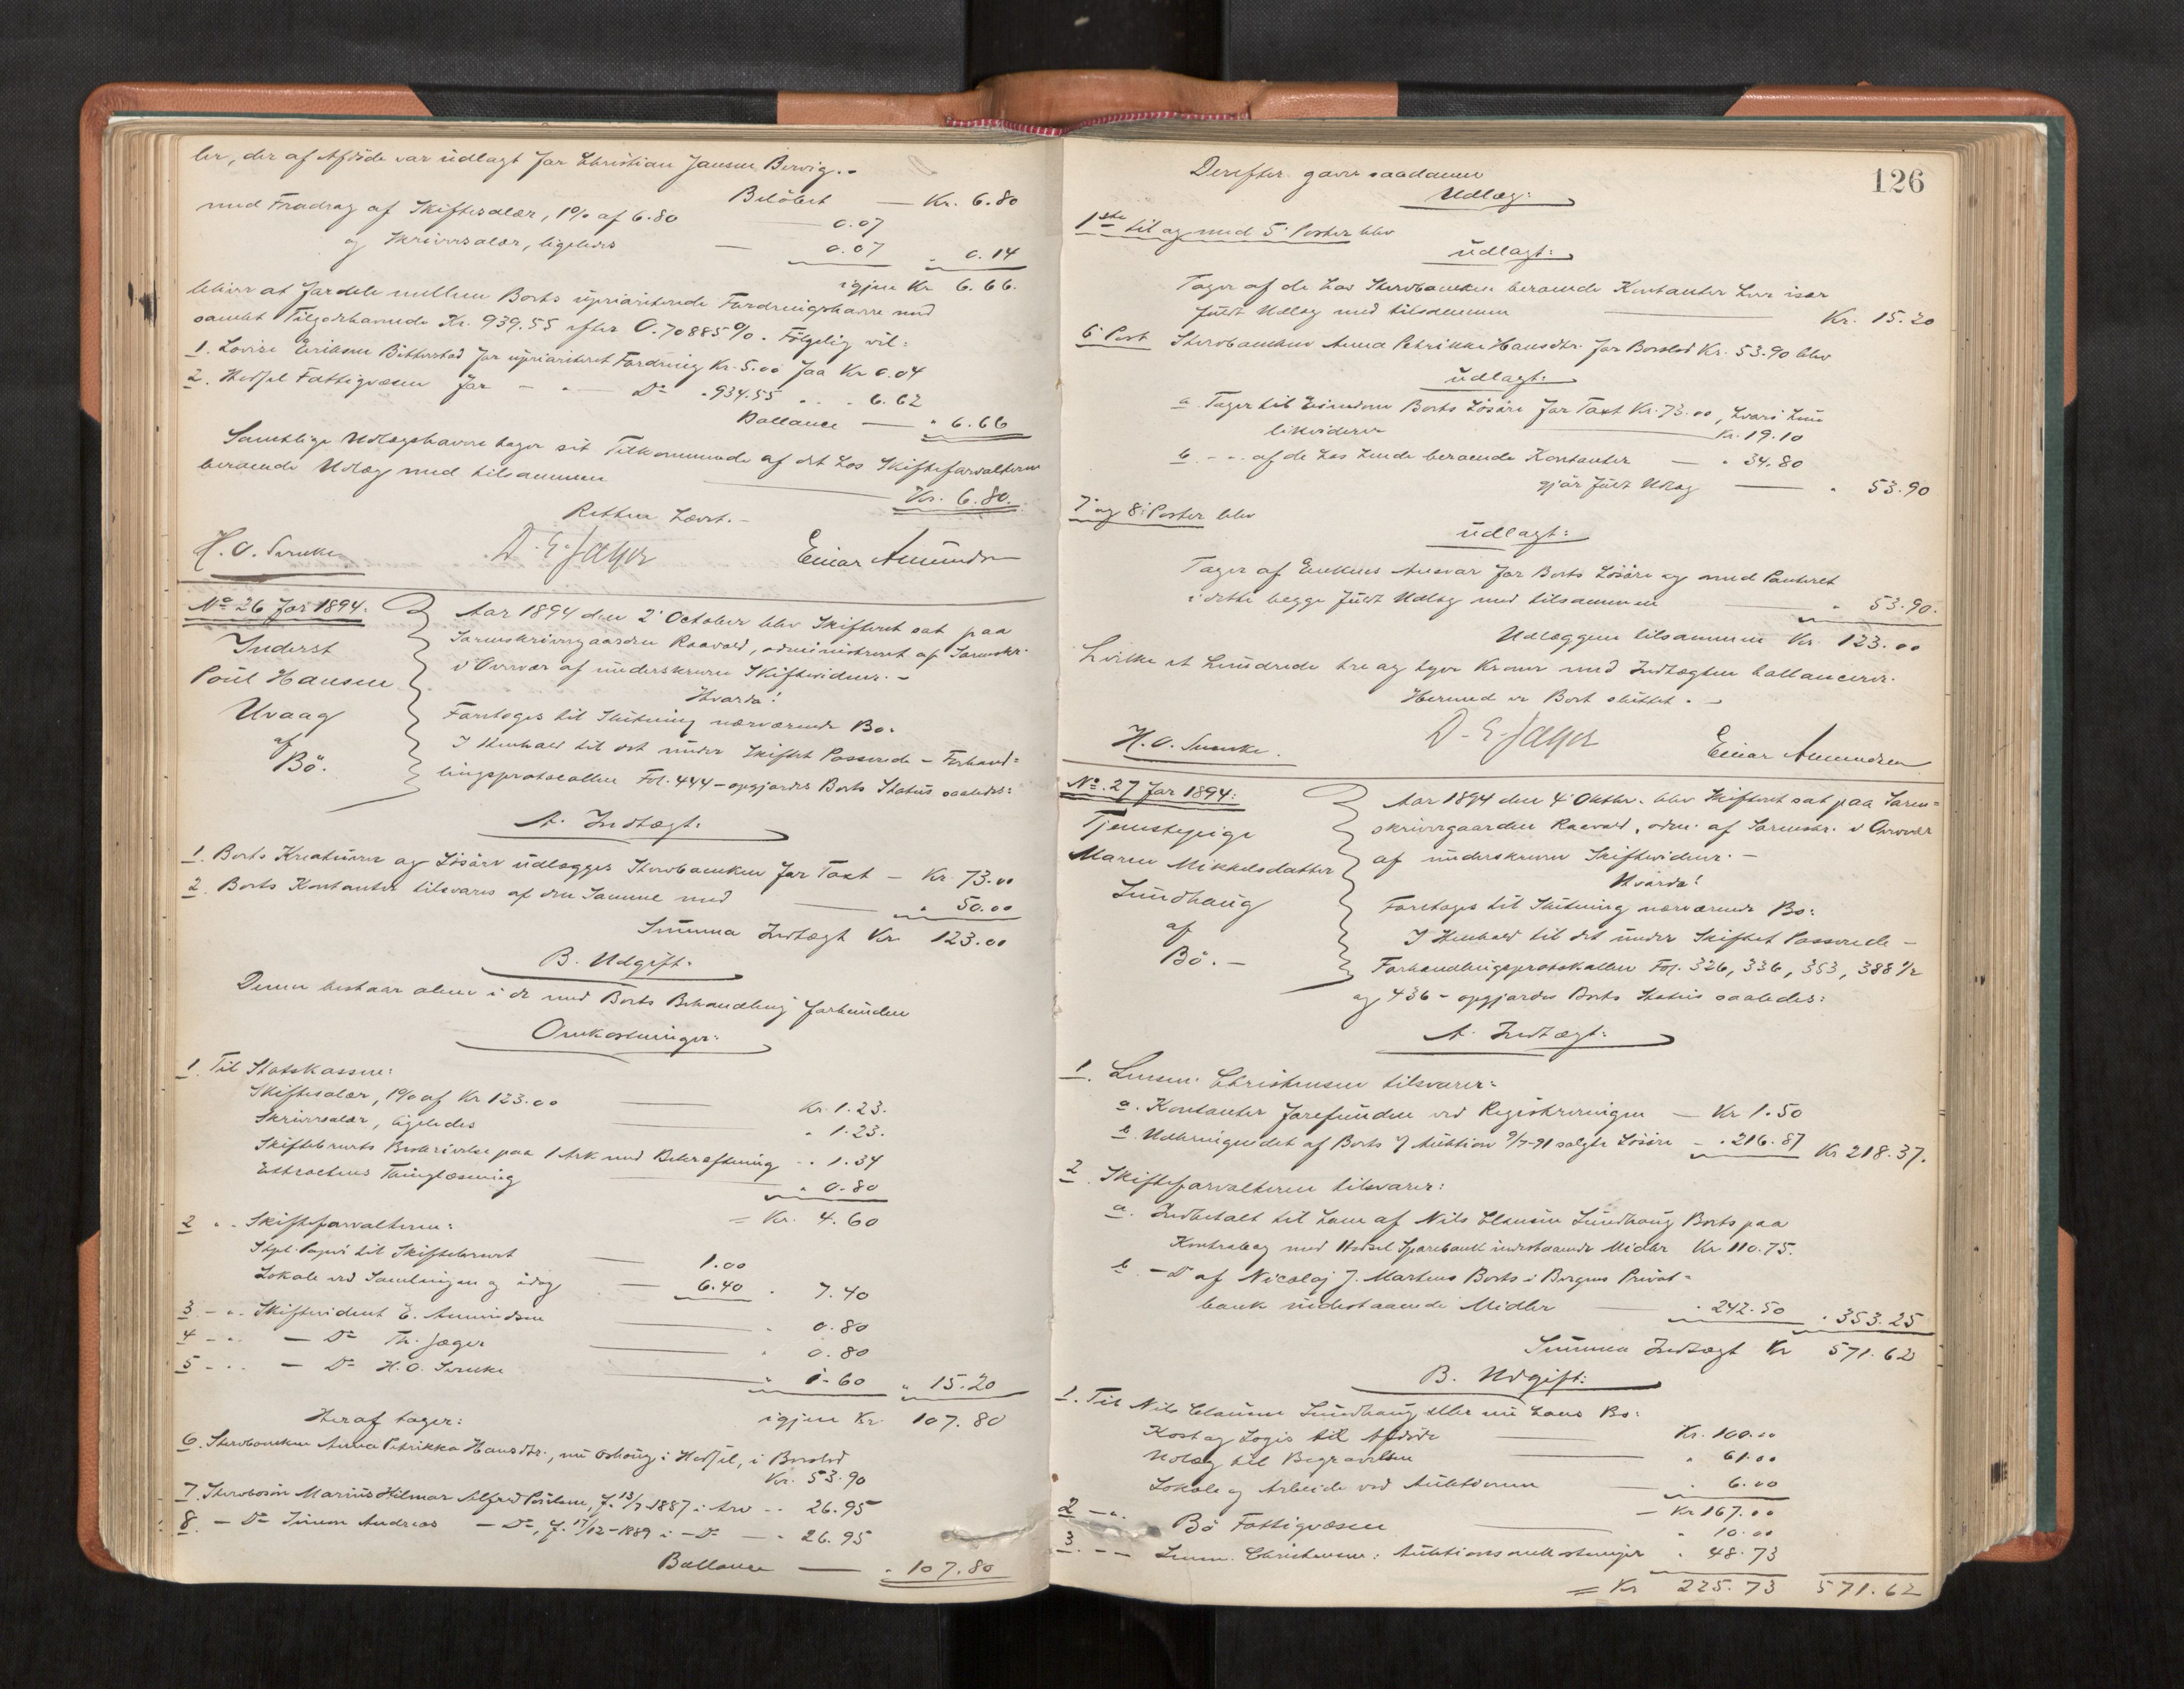 ler, der af Afdöde var udlagt for Christian Jansen Bervig.-
Belöbet — Kr. 6.80
med Fradrag af Skiftesalær, 1% af 6.80 — 0.07
og Skriversalær, ligeledes — 0.07 " 0.14
igjen Kr 6.66.
bliver at fordele mellem Boets uprioriterede Fordringshavere med
samlet Tilgodehavende Kr. 939.55 efter 0.70885%. Fölgelig vil:
1. Lovise Eriksen Bitterstad for uprioriteret Fordring Kr. 5.00 faa Kr 0.04
2. Hadsel Fattigvæsen for — " — Do " 934.55 " " 6.62
Ballance — " 6.66
Samtlige Udlægshavere tager sit Tilkommende af det hos Skifteforvalteren
beroende Udlæg med tilsammen — Kr. 6.80.
Retten hævet.-
H. O. Svenke D. E. Jager Einar Amundsen
No 26 for 1894.
Inderst
Poul Hansen
Uvaag
af
Bö.
Aar 1894 den 2' October blev Skifteret sat paa
Sorenskrivergaarden Raavold, administreret af Sorenskr.
i Overvær af underskrevne Skiftevidner.-
Hvorda!
Foretoges til Slutning nærværende Bo.
I Henhold til det under Skiftet Passerede - Forhand=
lingsprotocollen Fol. 444 - opgjordes Boets Status saaledes:
A. Indtægt.
1. Boets Kreaturer og Lösöre udlægges Stervboenken for Taxt — Kr. 73.00
2. Boets Kontanter tilsvares af den Samme med — " 50.00
Summa Indtægt Kr. 123.00
B. Udgift.
Denne bestaar alene i de med Boets Behandling forbundne
Omkostninger:
1. Til Statskassen:
Skiftesalær, 1% af Kr 123.00 — Kr. 1.23.
Skriversalær, ligeledes — " 1.23.
Skiftebrevets Beskrivelse paa 1 Ark med Bekræftning - " 1.34
Extractens Thinglæsning — " 0.80
= Kr. 4.60
2 " - Skifteforvalteren:
Stpl. Papir til Skiftebrevet — 1.00
Lokale ved Samlingen og idag — 6.40 " 7.40
3 - " - Skiftevidnet E. Amundsen — " 0.80
4 - " - — Do Th. Jæger — " 0.80
5 - " - — Do H. O. Svenke — " 1.60 " 15.20
Heraf tager: igjen Kr. 107.80
6. Stervboenken Anna Petrikke Hansdtr., i Hadsel, i Boeslod
Kr. 53.90
7. Stervbosön Marius Hilmar Alfred Poulsen, f. 13/7 1887 i Arv - " 26.95
8. — Do Simon Andreas — Do, f. 17/12-1889 i — Do — " 26.95
Ballance — " 107.80
126
Derefter gaves saadanne
Udlæg:
1ste til og med 5' Poster blev
udlagt:
Tager af de hos Stervboenken beroende Kontanter hver især
fuldt Udlæg med tilsammen — Kr. 15.20
6' Post Stervboenken Anna Petrikke Hansdtr. for Boeslod Kr. 53.90 blev
udlagt:
a. Tager til Eiendom Boets Lösöre for Taxt Kr. 73.00, hvori hun
likviderer — Kr. 19.10
b - " - af de hos hende beroende Kontanter — " 34.80
gjör fuldt Udlæg — " 53.90
7' og 8' Poster blev
udlagt:
Tager af Enkens Ansvar for Boets Lösöre og med Panteret
i dette begge fuldt Udlæg med tilsammen — " 53.90.
Udlæggene tilsammen Kr. 123.00
hvilke et hundrede tre og tyve Kroner med Indtægten ballancerer.
Hermed er Boet sluttet.-
H. O. Svenke. D. E. Jager Einar Amundsen
No. 27 for 1894:
Tjenstepige
Maren Mikkelsdatter
Lundhaug
af
Bö.-
Aar 1894 den 4' Oktbr. blev Skifteret sat paa Soren=
skrivergaarden Raavold, adm. af Sorenskr. i Overvær
af underskrevne Skiftevidner.-
Hvorda!
Foretoges til Slutning nærværende Bo:
I Henhold til det under Skiftet Passerede -
Forhandlingsprotokollen Fol. 326, 336, 353, 388 1/2
og 436 - opgjordes Boets Status saaledes:
A. Indtægt:
1. Lensm. Christensen tilsvarer:
a. Kontanter forefunden ved Registreringen — Kr 1.50
b. Udbringendet af Boets ved Auktion 9/7-91 solgte Lösöre - " 216.87 Kr 218.37.
2. Skifteforvalteren tilsvarer:
a. Indbetalt til ham af Nils Clausen Lundhaug Boets paa
Kontrabog med Hadsel Sparebank indestaaende Midler Kr 110.75.
b. - Do af Nicolaj J. Martens Boets i Bergens Privat=
bank indestaaende Midler — " 242.50 " 353.25
Summa Indtægt Kr 571.62
B. Udgift:
1. Til Nils Clausen Lundhaug eller nu hans Bo:
Kost og Logis til Afdöde — Kr. 100.00
Udlæg til Begravelsen — " 61.00
Lokale og Arbeide ved Auktionen — " 6.00
— Kr 167.00
2 — " . Bö Fattigvæsen — " 10.00
3. - — Lensm. Christensen: Auktionsomkostninger " 48.73
= Kr 225.73 571.62